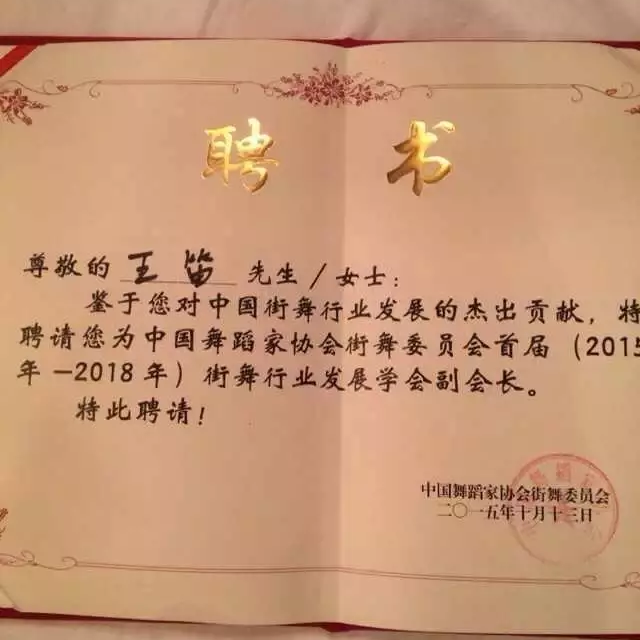 聘书
尊敬的 王笛 先生/女士：
鉴于您对中国街舞行业发展的杰出贡献，特
聘请您为中国舞蹈家协会街舞委员会首届（2015
年-2018年）街舞行业发展学会副会长。
特此聘请！
中国舞蹈家协会街舞委员会
二〇一五年十月十三日